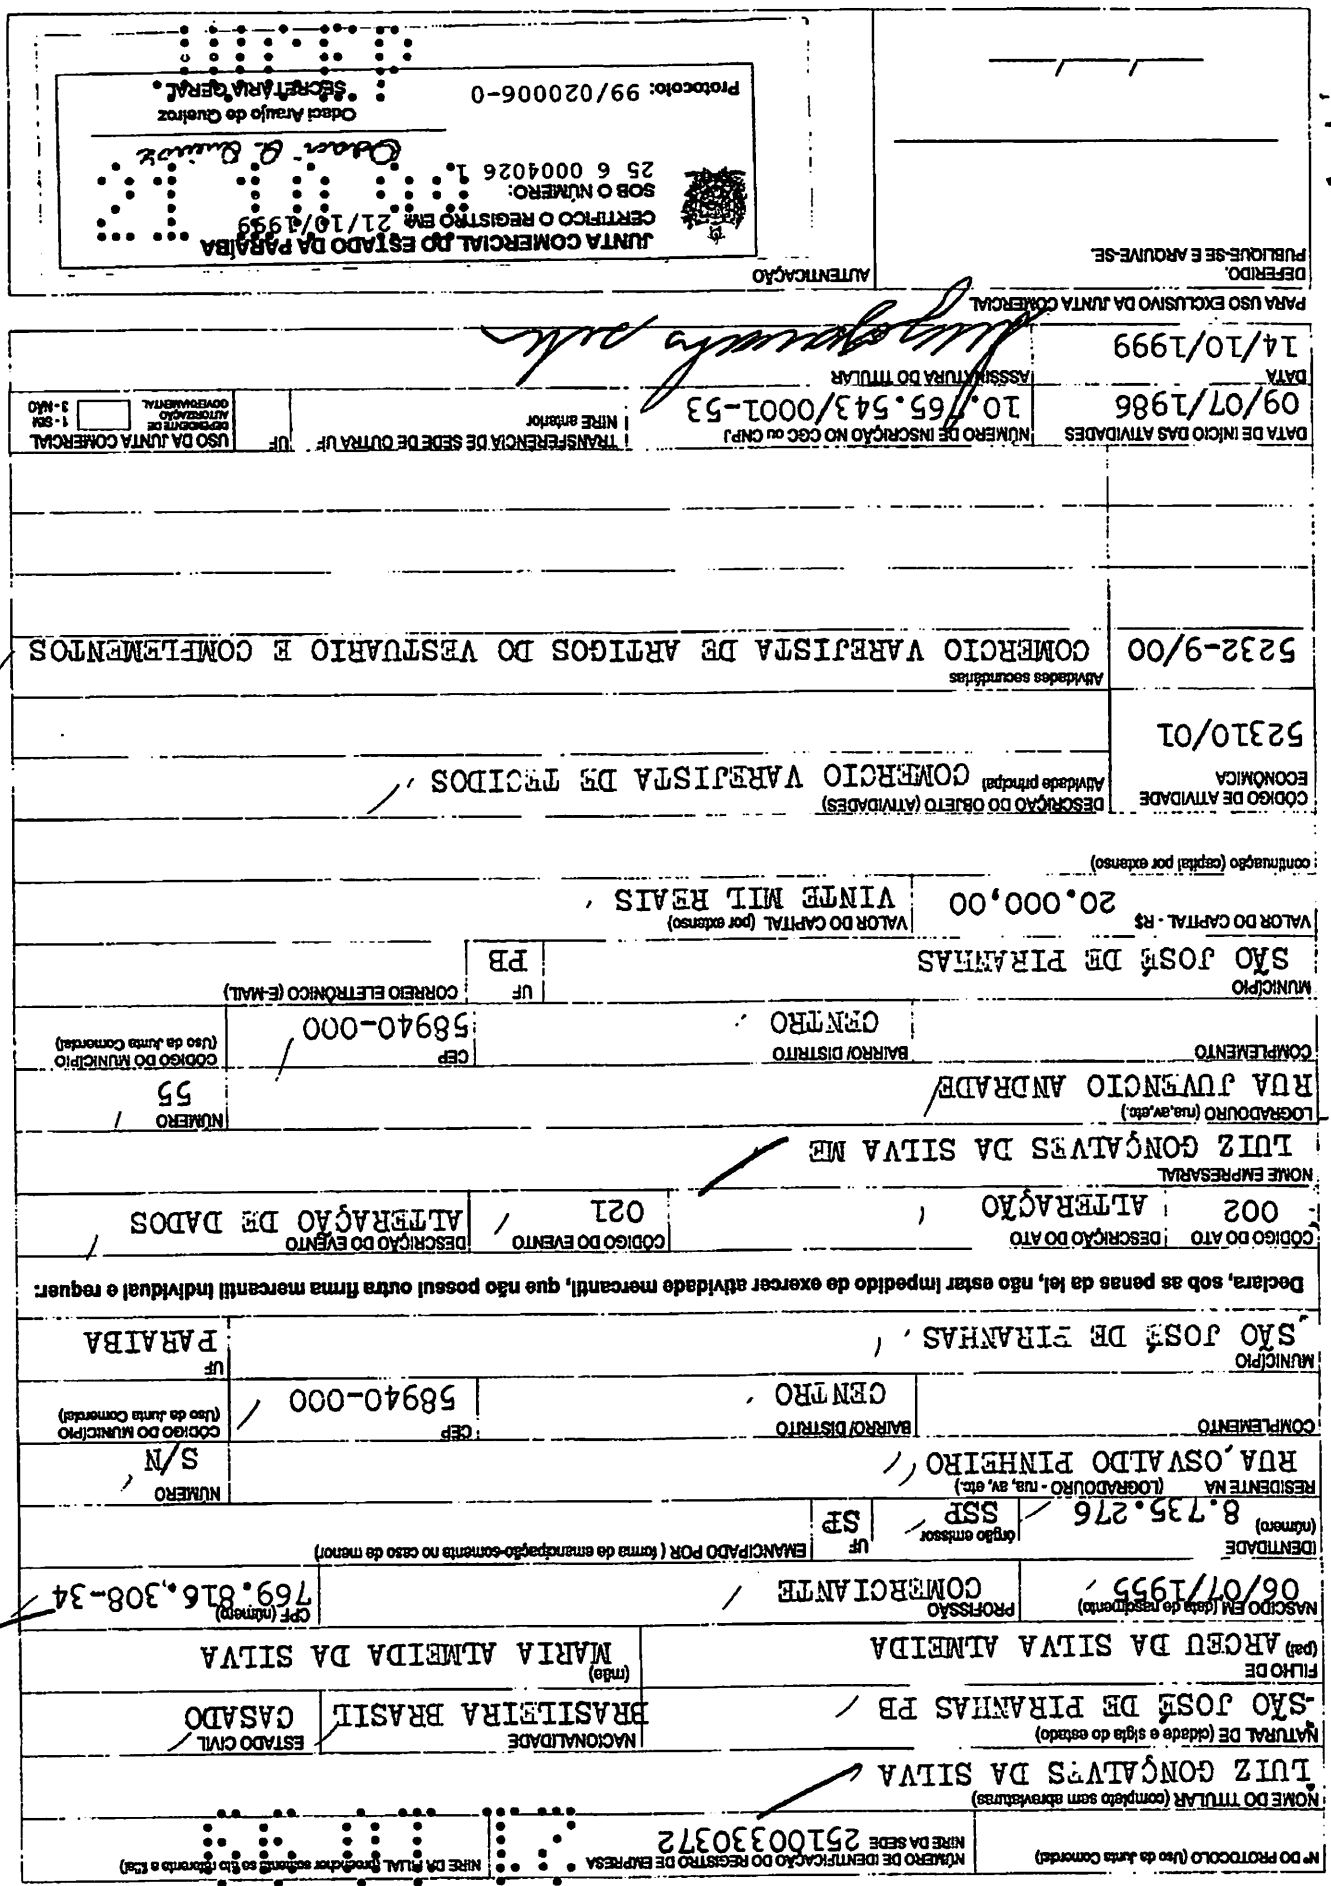 Nº DO PROTOCOLO (Uso da Junta Comercial)
NÚMERO DE IDENTIFICAÇÃO DO REGISTRO DE EMPRESA
NIRE DA SEDE 25100330372
NIRE DA FILIAL (preencher somente se ato referente a filial)
NOME DO TITULAR (completo sem abreviaturas)
LUIZ GONÇALVES DA SILVA
NATURAL DE (cidade e sigla do estado)
SÃO JOSÉ DE PIRANHAS PB
NACIONALIDADE
BRASILEIRA BRASIL
ESTADO CIVIL
CASADO
FILHO DE
(pai) ARCEU DA SILVA ALMEIDA
(mãe)
MARIA ALMEIDA DA SILVA
NASCIDO EM (data de nascimento)
06/07/1955
PROFISSÃO
COMERCIANTE
CPF (número)
769.816.308-34
IDENTIDADE
(número) 8.735.276
órgão emissor
SSP
UF
SP
EMANCIPADO POR ( forma de emancipação-somente no caso de menor)
RESIDENTE NA (LOGRADOURO - rua, av, etc.)
RUA OSVALDO PINHEIRO
NÚMERO
S/N
COMPLEMENTO
BAIRRO/ DISTRITO
CENTRO
CEP
58940-000
CÓDIGO DO MUNICÍPIO
(Uso da Junta Comercial)
MUNICÍPIO
SÃO JOSÉ DE PIRANHAS
UF
PARAIBA
Declara, sob as penas da lei, não estar impedido de exercer atividade mercantil, que não possui outra firma mercantil individual e requer:
CÓDIGO DO ATO
002
DESCRIÇÃO DO ATO
ALTERAÇÃO
CÓDIGO DO EVENTO
021
DESCRIÇÃO DO EVENTO
ALTERAÇÃO DE DADOS
NOME EMPRESARIAL
LUIZ GONÇALVES DA SILVA ME
LOGRADOURO (rua,av,etc.)
RUA JUVENCIO ANDRADE
NÚMERO
55
COMPLEMENTO
BAIRRO/ DISTRITO
CENTRO
CEP
58940-000
CÓDIGO DO MUNICÍPIO
(Uso da Junta Comercial)
MUNICÍPIO
SÃO JOSÉ DE PIRANHAS
UF
PB
CORREIO ELETRÔNICO (E-MAIL)
VALOR DO CAPITAL - R$
20.000,00
VALOR DO CAPITAL (por extenso)
VINTE MIL REAIS
continuação (capital por extenso)
CÓDIGO DE ATIVIDADE
ECONÔMICA
DESCRIÇÃO DO OBJETO (ATIVIDADES)
Atividade principal COMERCIO VAREJISTA DE TECIDOS
52310/01
Atividades secundárias
5232-9/00
COMERCIO VAREJISTA DE ARTIGOS DO VESTUARIO E COMPLEMENTOS
DATA DE INÍCIO DAS ATIVIDADES
09/07/1986
NÚMERO DE INSCRIÇÃO NO CGC ou CNPJ
10.765.543/0001-53
TRANSFERÊNCIA DE SEDE DE OUTRA UF
NIRE anterior
UF
USO DA JUNTA COMERCIAL
DEPENDENTE DE
AUTORIZAÇÃO
GOVERNAMENTAL
1 - SIM
3 - NÃO
DATA
14/10/1999
ASSSINATURA DO TITULAR
PARA USO EXCLUSIVO DA JUNTA COMERCIAL
DEFERIDO.
PUBLIQUE-SE E ARQUIVE-SE.
AUTENTICAÇÃO
JUNTA COMERCIAL DO ESTADO DA PARAÍBA
CERTIFICO O REGISTRO EM 21/10/1999
SOB O NÚMERO:
25 6 0004026 1
Odaci A. Queiroz
Odaci Araujo de Queiroz
SECRETÁRIA GERAL
Protocolo: 99/020006-0